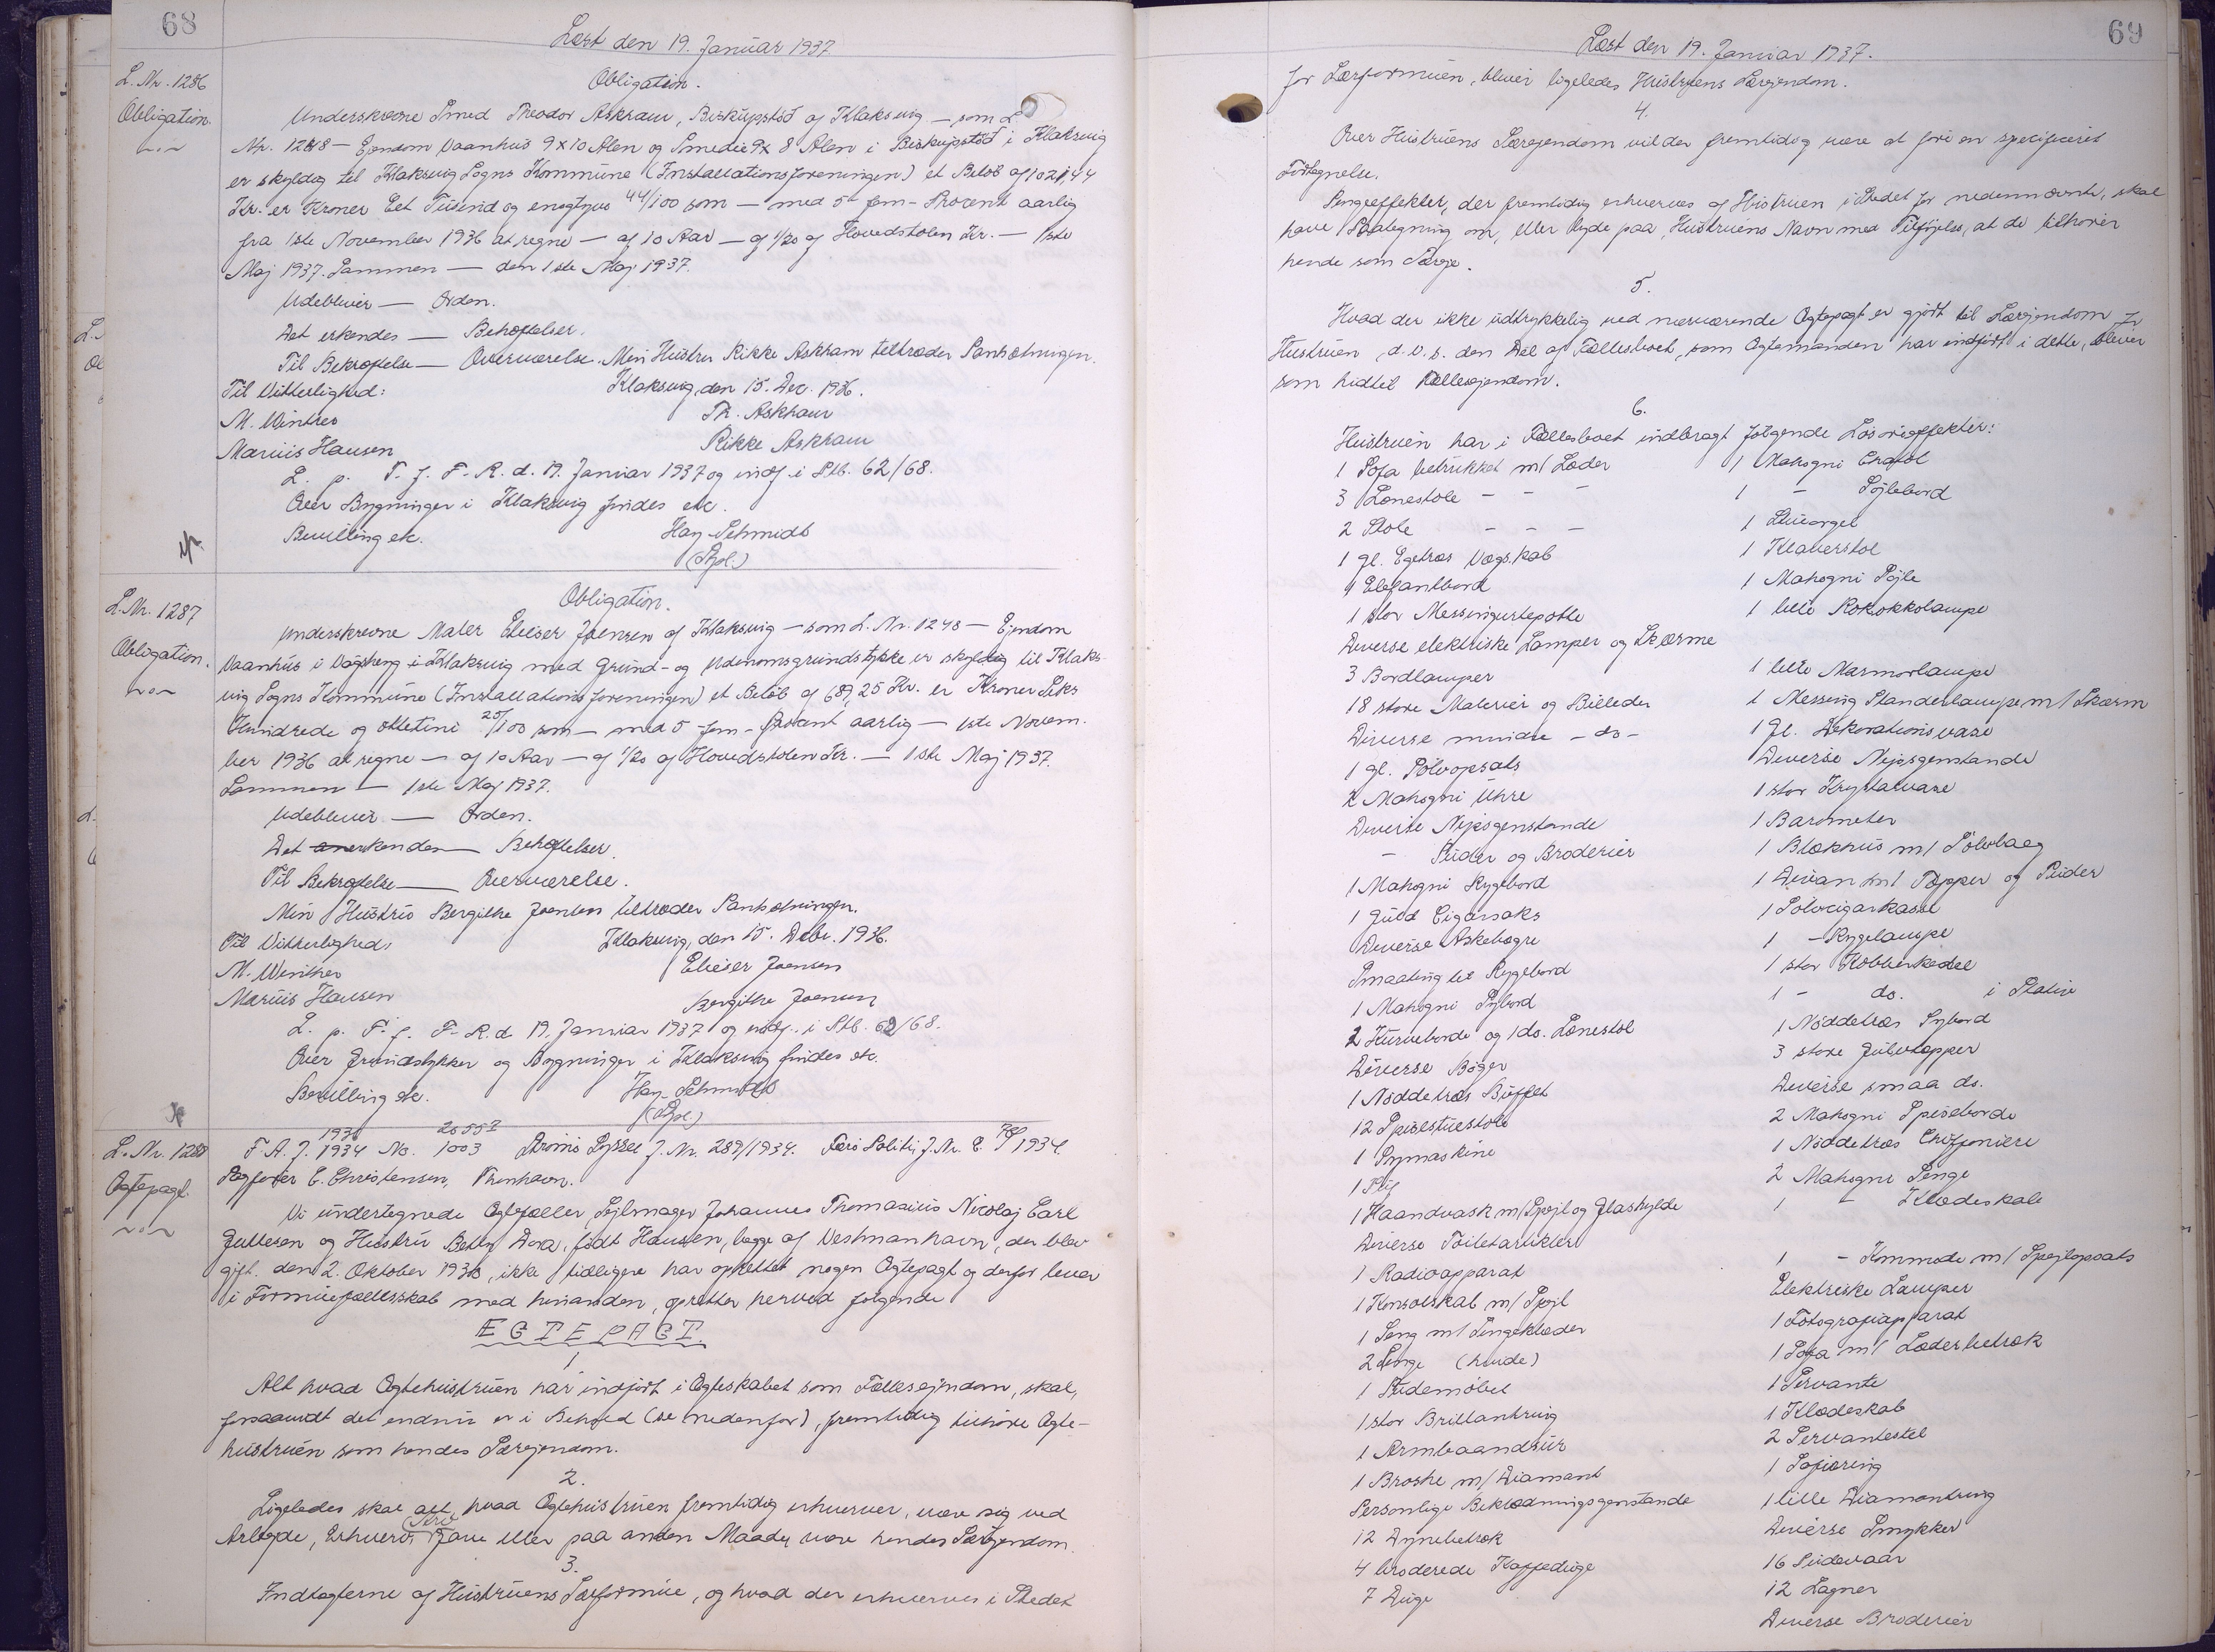 68
Læst den 19. Januar 1937
L. Nr. 1286
Obligation.
Obligation.
Underskrevne Smed Theodor Askham, Biskupstöð af Klaksvig — som L.
Nr. 1248 — Ejendom Vaanhus 9x10 Alen og Smedie 9x8 Alen i Biskupstöð i Klaksvig
er skyldig til Klaksvig Sogns Kommune (Installationsforeningen) et Beløb af 1021,44
Kr. er Kroner Eet Tusind og enogtyve 44/100 som — med 5 - fem - Procent aarlig
fra 1ste November 1936 at regne — af 10 Aar — af 1/20 af Hovedstolen Kr. — 1ste
Maj 1937. Sammen — den 1ste Maj 1937.
Udebliver — Orden.
Det erkendes — Behæftelser.
Til Bekræftelse — Overværelse. Min Hustru Rikke Askham tiltræder Pantsætningen.
Til Vitterlighed: Klaksvig, den 15. Dec. 1936.
M. Winther Th. Askham
Marius Hansen Rikke Askham
L. p. T. f. F. R. d. 19. Januar 1937 og indf. i Ptb. 62/68.
Over Bygninger i Klaksvig findes etc.
Bevilling etc. Hay-Schmidt
(Spl.)
L. Nr. 1287
Obligation.
Obligation.
Underskrevne Maler Elieser Joensen af Klaksvig — som L. Nr. 1248 — Ejendom
Vaanhus i Vágsheyg i Klaksvig med Grund- og Udenomsgrundstykke er skyldig til Klaks-
vig Sogns Kommune (Installationsforeningen) et Beløb af 689,25 Kr. er Kroner Seks
Hundrede og ottetini 25/100 som — med 5 - fem - Procent aarlig — 1ste Novem-
ber 1936 at regne — af 10 Aar — af 1/20 af Hovedstolen Kr. — 1ste Maj 1937.
Sammen — 1ste Maj 1937.
Udebliver — Orden.
Det anerkendes — Behæftelser.
Til Bekræftelse — Overværelse.
Min Hustru Bergithe Joensen tiltræder Pantsætningen.
Til Vitterlighed: Klaksvig, den 15. Debr. 1936.
M. Winther Elieser Joensen
Marius Hansen Bergithe Joensen
L. p. T. f. F. R. d. 19. Januar 1937 og indf. i Ptb. 62/68.
Over Grundstykker og Bygninger i Klaksvig findes etc.
Bevilling etc. Hay-Schmidt
(Spl.)
L. Nr. 1288
Ægtepagt.
F. A. J. 1934 No. 1003 Strömö Syssel J. Nr. 287/1934. Færø Politi J. Nr. E. 1934.
Sagfører C. Christensen, Thorshavn.
Vi undertegnede Ægtefæller, Sejlmager Johannes Thomasius Nicolaj Carl
Gullesen og Hustru Betty Dora, født Hansen, begge af Vestmanhavn, der blev
gift den 2. Oktober 1930, ikke tidligere har oprettet nogen Ægtepagt og derfor lever
i Formuefællesskab med hinanden, opretter herved følgende
ÆGTEPAGT.
1
Alt hvad Ægtehustruen har indført i Ægteskabet som Fællesejendom, skal,
forsaavidt det endnu er i Behold (se nedenfor), fremtidig tilhøre Ægte-
hustruen som hendes Særejendom.
2.
Ligeledes skal alt, hvad Ægtehustruen fremtidig erhverver, være sig ved
Arbejde, Erhverv, Arv Gave eller paa anden Maade, være hendes Særejendom.
3.
Indtægterne af Hustruens Særformue, og hvad der erhverves i Stedet
69
Læst den 19. Januar 1937.
for Særformuen, bliver ligeledes Hustruens Særejendom.
4.
Over Hustruens Særejendom vil der fremtidig være at føre en specificeret
Fortegnelse.
Pengeeffekter, der fremtidig erhverves af Hustruen i Stedet for nedennævnte, skal
have Paategning om, eller lyde paa, Hustruens Navn med Tilføjelse, at de tilhører
hende som Særeje.
5.
Hvad der ikke udtrykkelig ved nærværende Ægtepagt er gjort til Særejendom for
Hustruen, d.v.s. den Del af Fællesboet, som Ægtemanden har indført i dette, bliver
som hidtil Fællesejendom.
6.
Hustruen har i Fællesboet indbragt følgende Løsøreeffekter:
1 Sofa betrukket m/ Læder
1 Mahogni Chatol
3 Lænestole - - -
1 - Søjlebord
2 Stole - - -
1 Stueorgel
1 gl. Egetræs Vægskab
1 Klaverstol
4 Elefantbord
1 Mahogni Søjle
1 stor Messingurtepotte
1 lille Rokokkolampe
Diverse elektriske Lamper og Skærme
3 Bordlamper
1 lille Marmorlampe
18 store Malerier og Billeder
1 Messing Standerlampe m/ Skærm
Diverse mindre - do -
1 gl. Dekorationsvase
1 gl. Sölvopsats
Diverse Nipsgenstande
2 Mahogni Uhre
1 stor Krystalvase
Diverse Nipsgenstande
1 Barometer
- Puder og Broderier
1 Blækhus m/ Sölvlaag
1 Mahogni Rygebord
1 Divan m/ Tæpper og Puder
1 Guld Cigarsaks
1 Sölvcigarkasse
Diverse Askebægre
1 - Rygelampe
Smaating til Rygebord
1 stor Kobberkedel
1 Mahogni Sybord
1 - do. i Stativ
2 Kurveborde og 1 do. Lænestol
1 Nøddetræs Sybord
Diverse Bøger
3 store Gulvtæpper
1 Nøddetræs Buffet
Diverse smaa do.
12 Spisestuestole
2 Mahogni Spiseborde
1 Symaskine
1 Nøddetræs Chiffoniere
2 Mahogni Senge
1 Haandvask m/ Spejl og Glashylde
1 - Klædeskab
Diverse Toiletartikler
1 Radioapparat
1 - Kommode m/ Spejlopsats
1 Konsolskab m/ Spejl
Elektriske Lamper
1 Seng m/ Sengeklæder
1 Fotografiapparat
2 Senge (hvide)
1 Sofa m/ Læderbetræk
1 Pudemøbel
1 Servante
1 stor Brillantring
1 Klædeskab
1 Armbaandsur
2 Servantestel
1 Broche m/ Diamant
1 Safirring
Personlige Beklædningsgenstande
1 lille Diamantring
12 Dynebetræk
Diverse Smykker
4 broderede Kaffeduge
16 Pudevaar
7 Duge
12 Lagner
Diverse Broderier